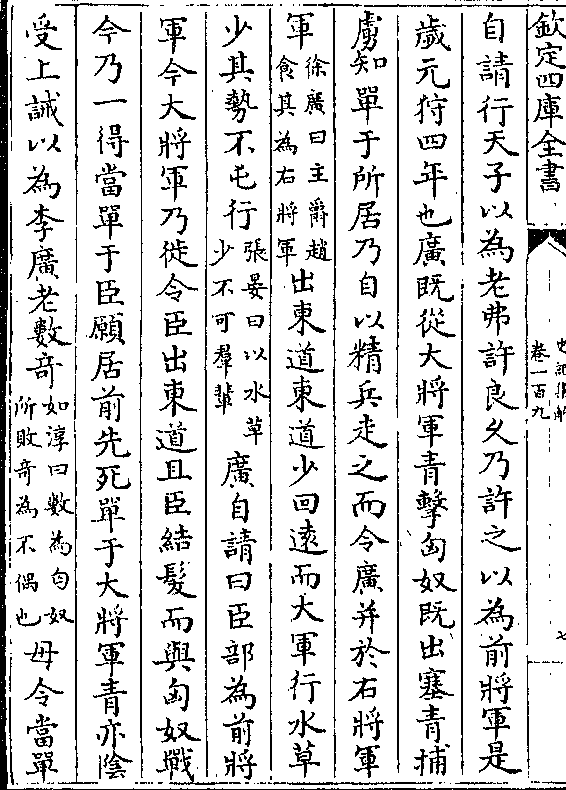 欽定四庫全書
史記集解
卷一百九
七
自請行天子以為老弗許良乆乃許之以為前將軍是
歲元狩四年也廣既從大將軍青擊匈奴既出塞青捕
虜知單于所居乃自以精兵走之而令廣并於右將軍
軍徐廣曰主爵趙食其為右將軍出東道東道少回逺而大軍行水草
少其勢不屯行張晏曰以水草少不可羣輩廣自請曰臣部為前將
軍今大將軍乃徙令臣出東道且臣結髮而與匈奴戰
今乃一得當單于臣願居前先死單于大將軍青亦隂
受上誡以為李廣老數竒如淳曰數為匈奴所敗竒為不偶也毋令當單